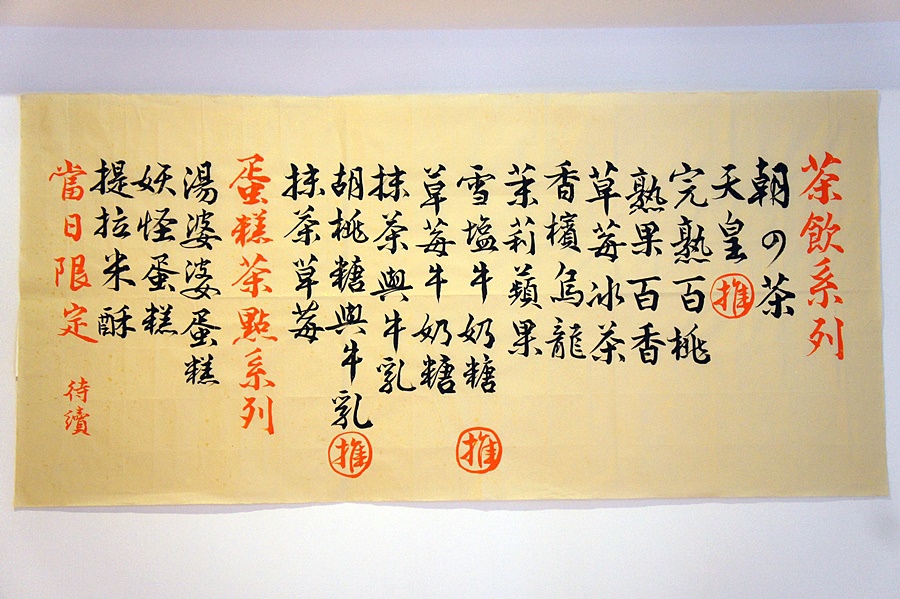 茶飲系列
朝の茶
天皇 推
完熟百桃
熟果百香
草莓冰茶
香檳烏龍
茉莉蘋果
雪塩牛奶糖 推
草莓牛奶糖
抹茶與牛乳
胡桃糖與牛乳 推
抹茶草莓
蛋糕茶點系列
湯婆婆蛋糕
妖怪蛋糕
提拉米酥
當日限定 待續